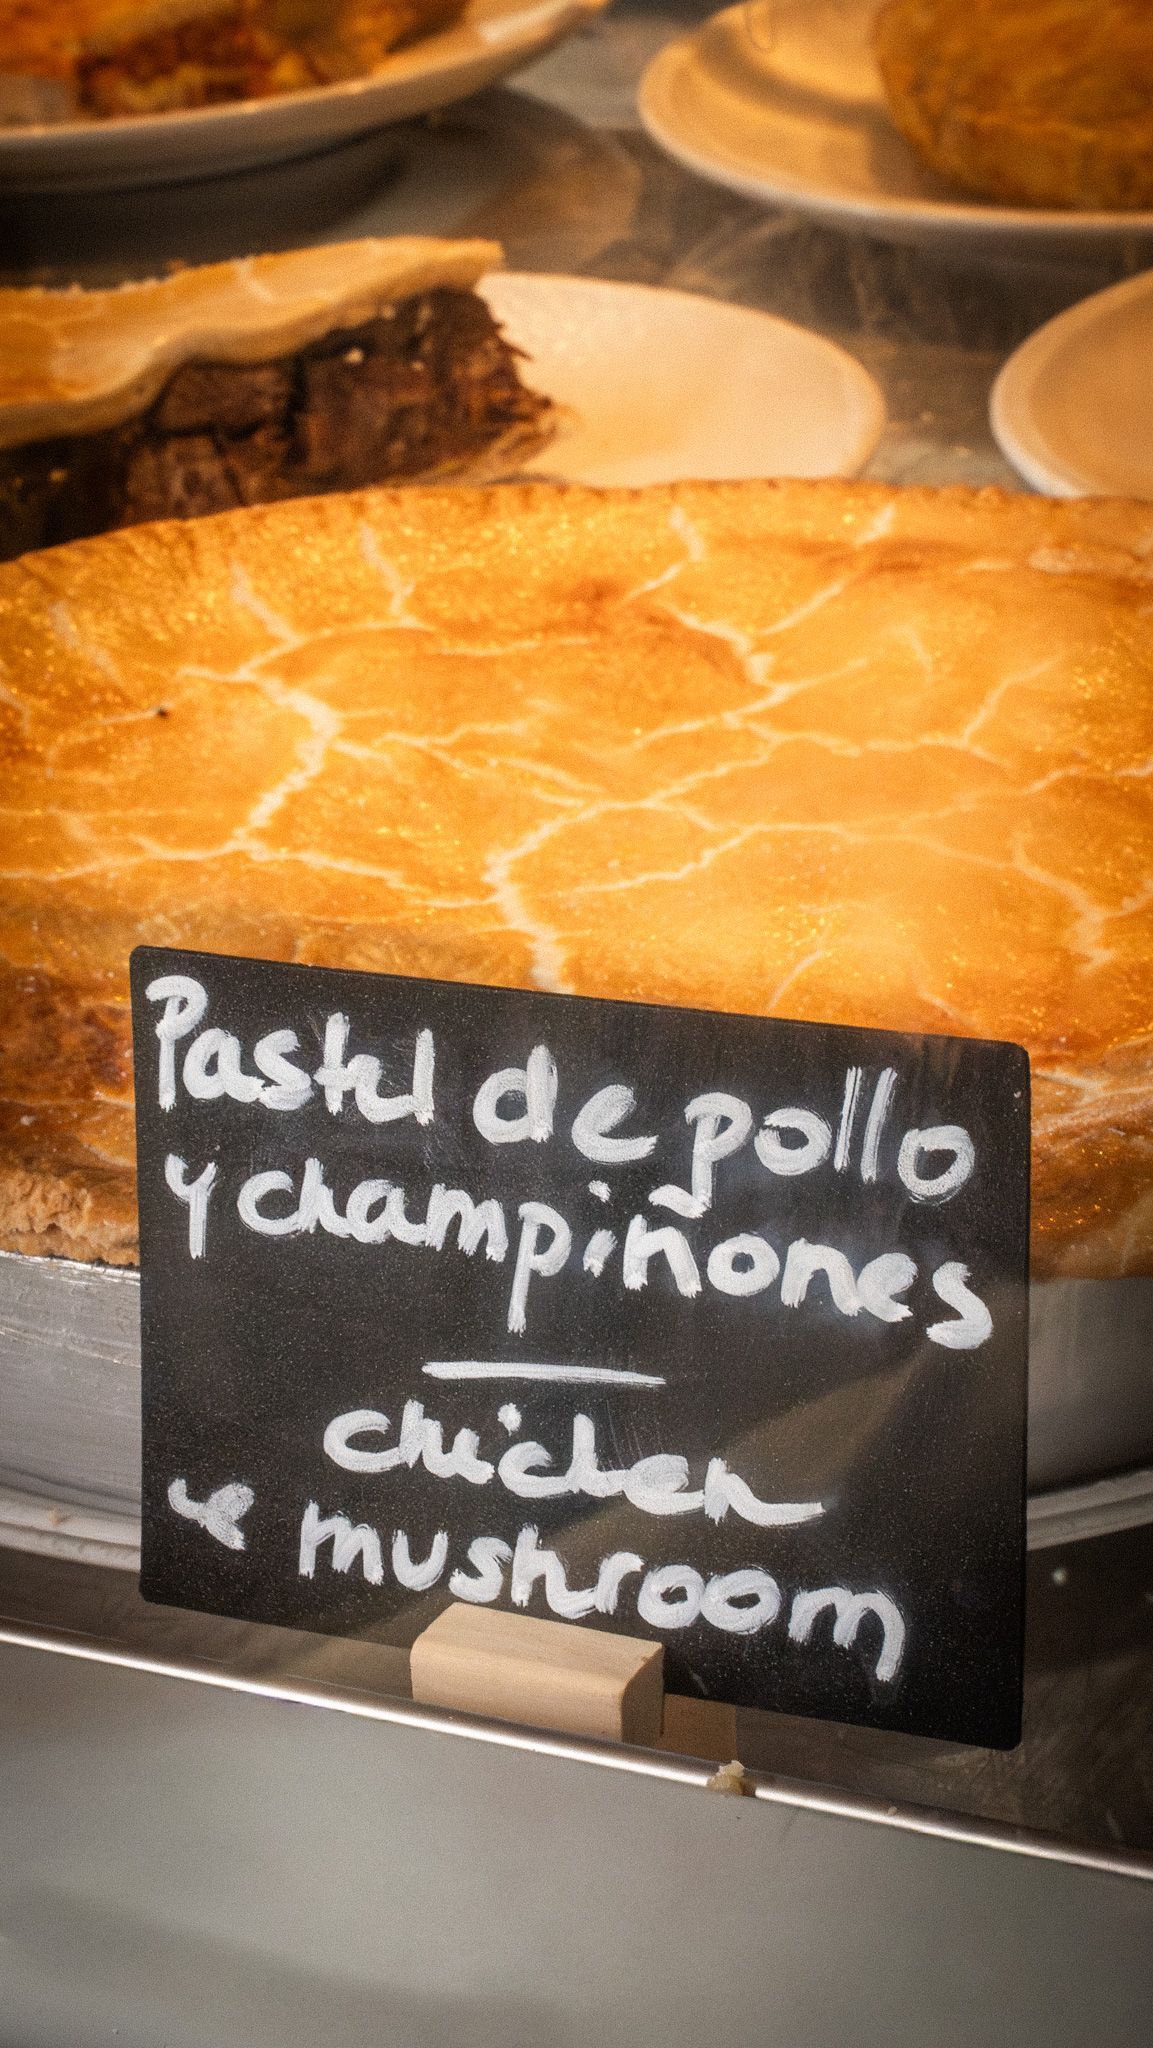 Pastel de pollo
y champiñones
chicken
& mushroom